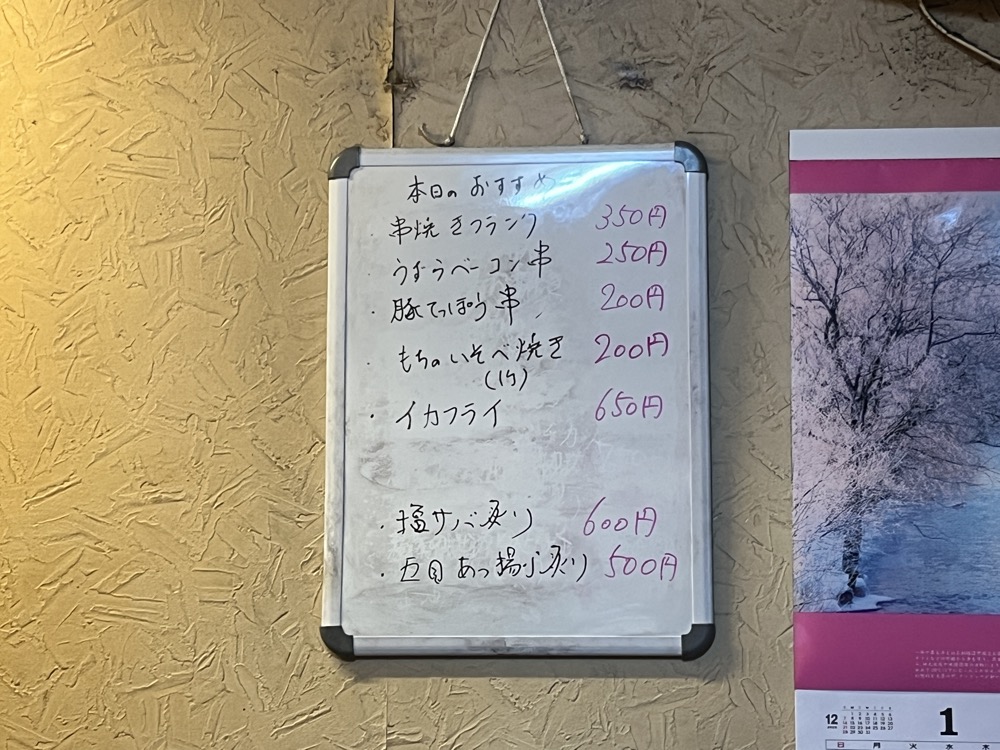 本日のおすすめ
・串焼きフランク 350円
・うずらベーコン串 250円
・豚てっぽう串 200円
・もちのいそべ焼き 200円
(1ケ)
・イカフライ 650円
・塩サバ炙り 600円
・五目あつ揚げ炙り 500円
12
1
日 月 火 水 木